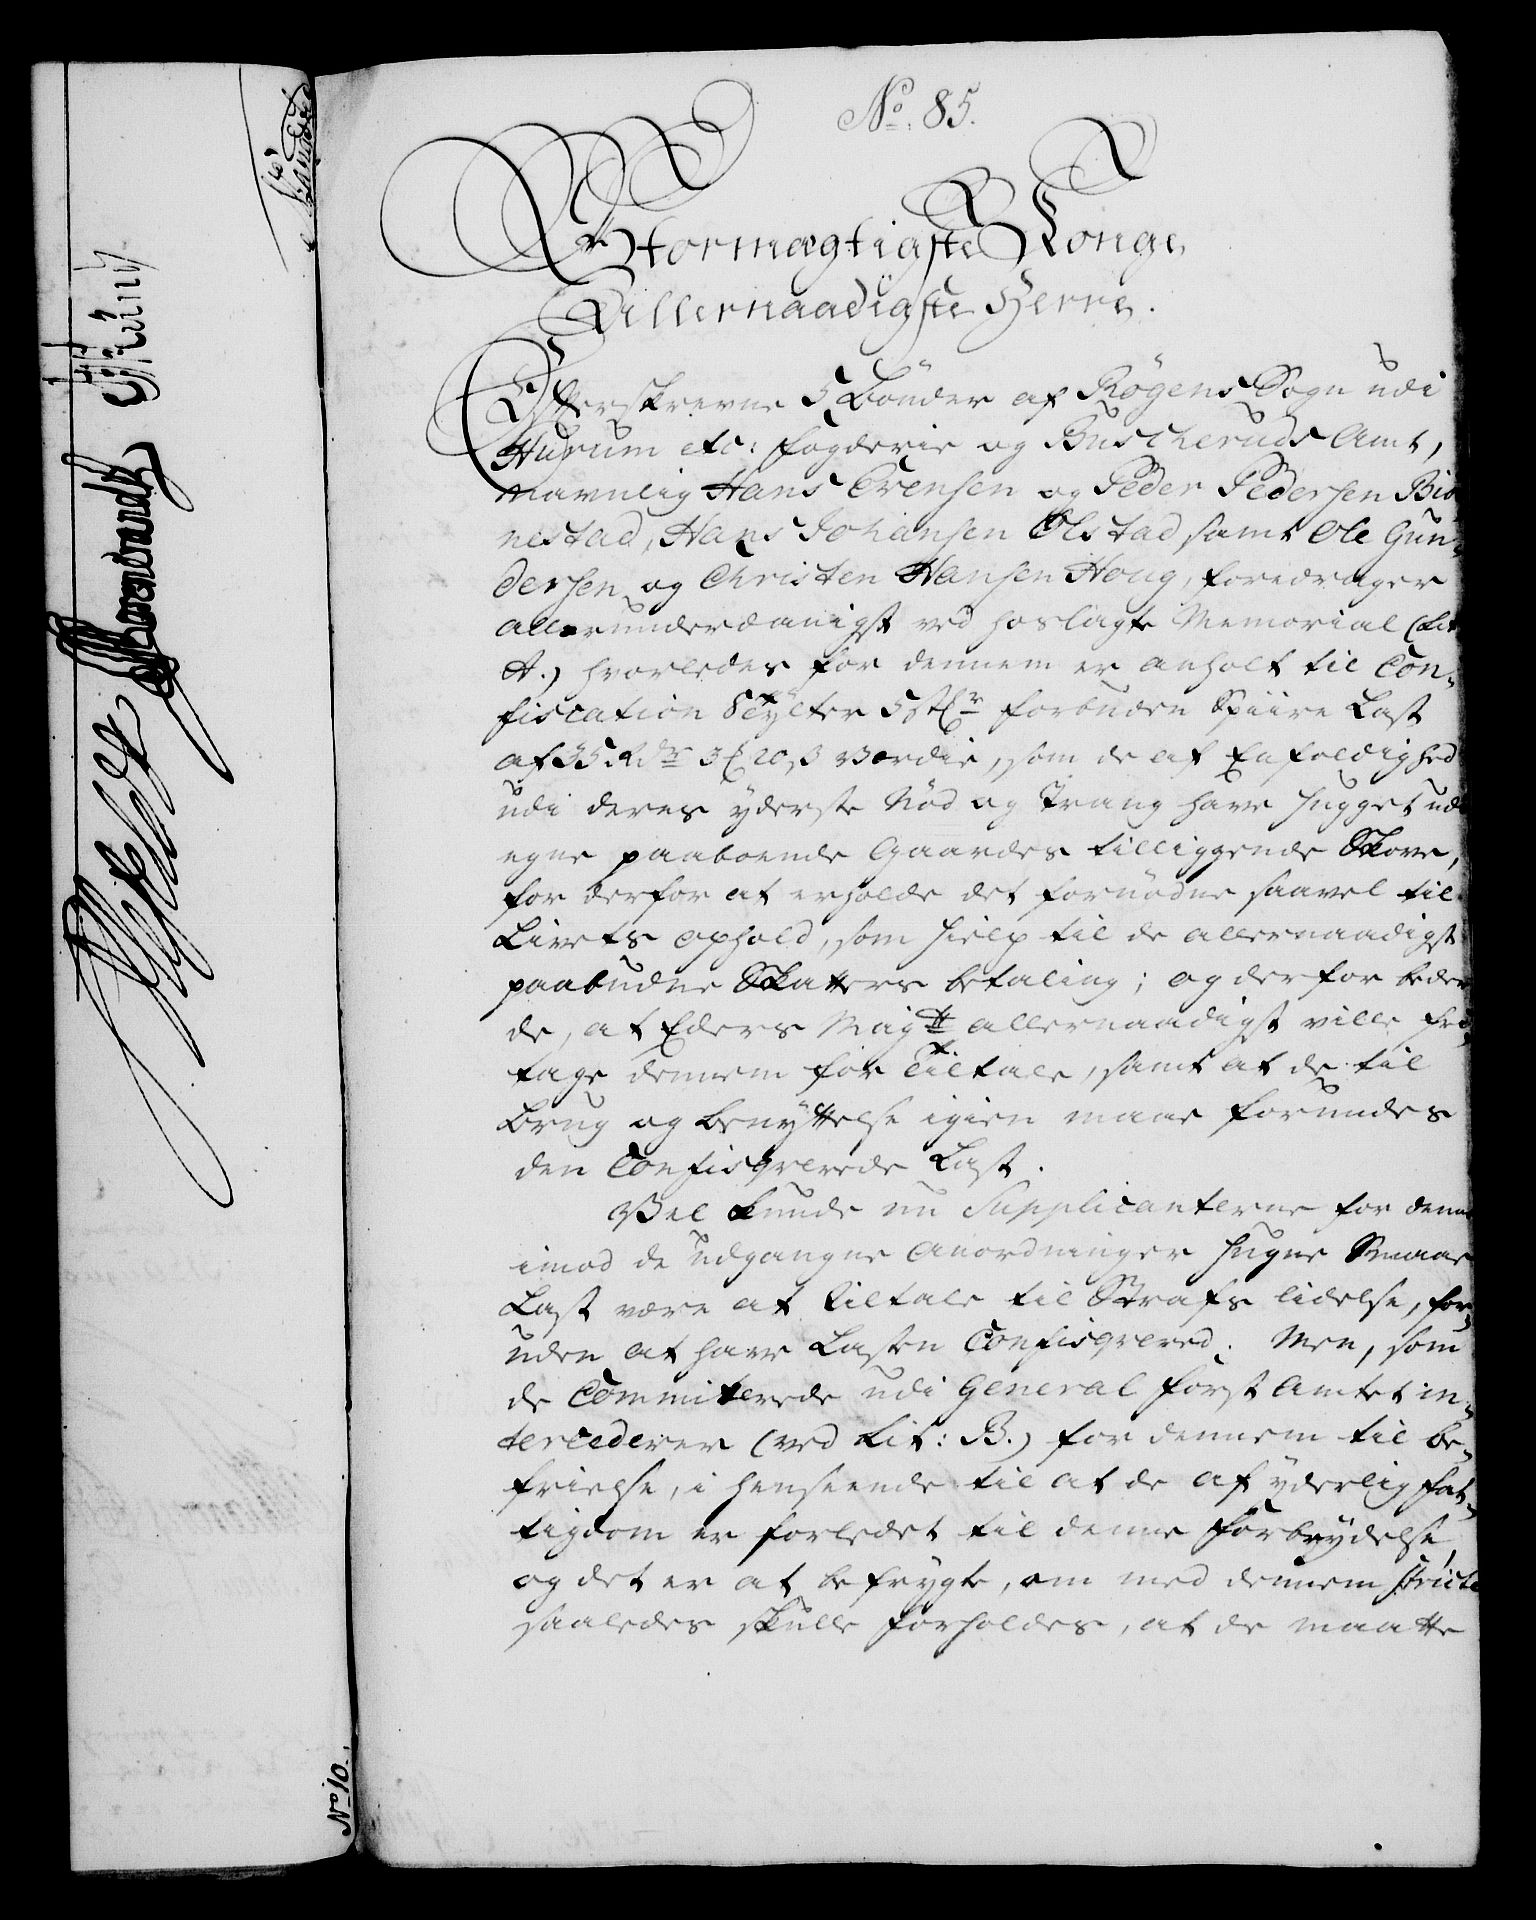 No. 85.
Stormægtigste Konge
Allernaadigste Herre.
Efterskrevne 5 Bønder af Røgens Sogn udi
Hurum etc: fogderie og Buscheruds Amt,
navnlig Hans Evensen og Peder Pedersen Biø
nestad, Hans Johansen Olstad samt Ole Gun-
dersen og Christen Hansen Houg, foredrager
allerunderdanigst ved hoslagte Memorial (Lit
A.) hvorledes for dennem er anholt til Con-
fiscation 8 tylter 5 st forbuden Spiire Last
af 35 Rdr 3 20 s Værdie, som de af Enfoldighed
udi deres yderste Nød og Trang have hugget udi
egne paaboende Gaardes tilliggende Skove,
for derfor at erholde det fornødne saavel til
Livets ophold, som hielp til de allernaadigst
paabudne Skatters betaling; og derfor beder
de, at Eders Mayt allernaadigst ville fri-
tage dennem for Tiltale, samt at de til
Brug og benyttelse igien maae forundes
den Confisqverede Last.
Vel kunde nu Supplicanterne for denne
imod de udgangne Anordninger hugne Smaae
Last være at tiltale til Strafs lidelse, for-
uden at have Lasten Confisqvered. Men, som
de Committerede udi General forst Amtet in-
tercederer (ved Lit: B.) for dennem til be-
frielse, i henseende til at de af yderlig fat-
tigdom er forledet til denne forbrydelse,
og det er at befrygte, om med dennem stricte
saaledes skulle forholdes, at de maatte
No 10.